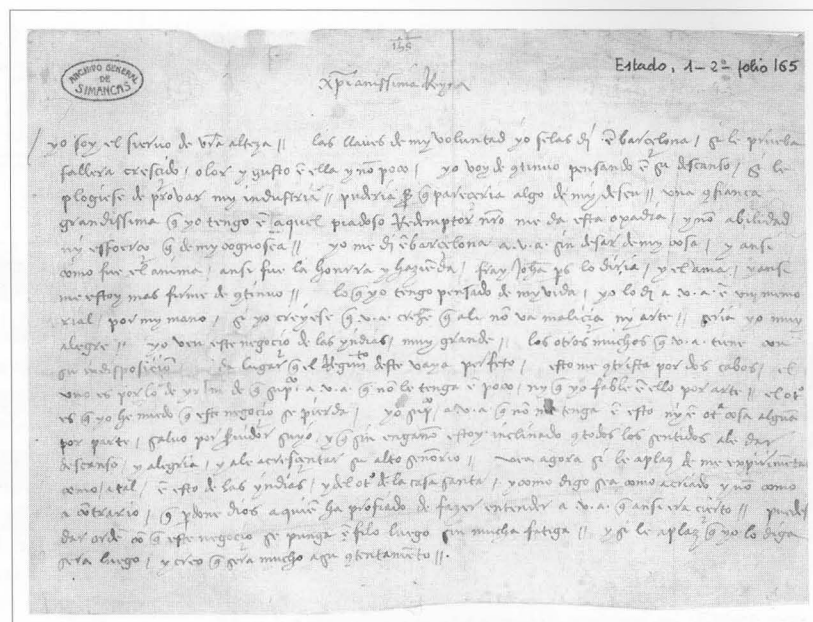 165
Estado, 1-2º folio 165
ARCHIVO GENERAL
DE
SIMANCAS
xpianissima Reyna
yo soy el siervo de vra alteza // las llaves de my voluntad yo se las di ẽ barcelona / si le prueba
fallera crescido / olor y gusto ẽ ella y nõ poco / yo voy de continuo pensando ẽ su descanso / si le
plogiese de provar my industria // puderia q̃ pareceria algo de my deseu // una
grandissima q̃ yo tengo ẽ aquel piadoso Redemptor nro me da esta osadia / y nõ abilidad
ny esfoerço q̃ de my cognosca // yo me di ẽ barcelona a v. a. sin desar de my cosa / y ansi
como fue el anima / ansi fue la honrra y hazienda / fray lo diria / y el ama / y ansi
me estoy mas firme de continuo // lo q̃ yo tengo pensado de my vida / yo lo di a v. a. ẽ un memo
rial / por my mano / si yo creyese q̃ v. a. q̃ ali nõ va malicia ny arte // seria yo muy
alegre // yo veu este negocio de las yndias / muy grande // los otros muchos q̃ v. a. tiene con
su indisposiciõn da lugar q̃ el Regimto deste vaya perfeto / esto me contrista por dos cabos / el
uno es por lo de de q̃ supco a v. a. q̃ nõ le tenga ẽ poco / ny q̃ yo fable ẽ ello por arte // el otº
es q̃ yo he miedo q̃ este negocio se pierda / yo supco a v. a. q̃ nõ me tenga ẽ esto ny ẽ otª cosa alguna
por parte / salvo por suyo / y q̃ sin engaño estoy inclinado con todos los sentidos a le dar
descanso / y alegria / y a le acresentar su alto señorio // vea agora si le aplaz de me
como / a tal / ẽ esto de las yndias / y del otº de la casa santa / y como digo sea como a criado y nõ como
a contrario / q̃ perdone dios a quiẽn ha profiado de fazer entender a v. a. q̃ ansi era cierto // puede
dar ordẽ cõ q̃ este negocio se punga ẽ filo luego sin mucha fatiga // y si le aplaz q̃ yo lo diga
sera luego / y creo q̃ sera mucho a su contentamẽto //.